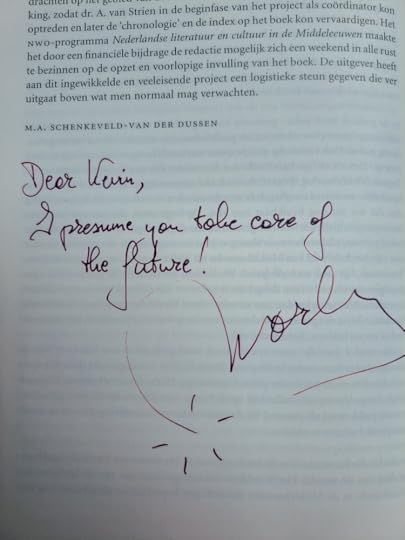 king, zodat dr. A. van Strien in de beginfase van het project als coördinator kon
optreden en later de 'chronologie' en de index op het boek kon vervaardigen. Het
NWO-programma Nederlandse literatuur en cultuur in de Middeleeuwen maakte
het door een financiële bijdrage de redactie mogelijk zich een weekend in alle rust
te bezinnen op de opzet en voorlopige invulling van het boek. De uitgever heeft
aan dit ingewikkelde en veeleisende project een logistieke steun gegeven die ver
uitgaat boven wat men normaal mag verwachten.
M.A. SCHENKEVELD-VAN DER DUSSEN
Dear Kevin,
I presume you take care of
the future!